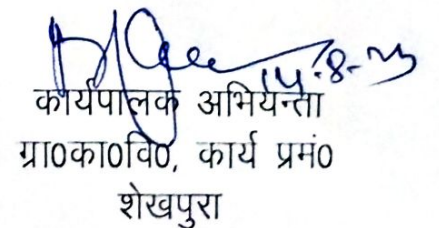 14-8-23
कार्यपालक अभियन्ता
ग्रा0का0वि0, कार्य प्रमं0
शेखपुरा